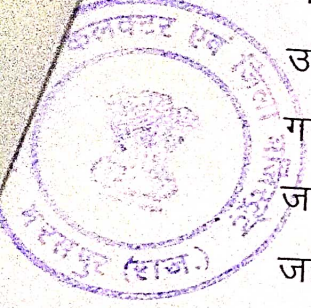 कलक्टर एवं जिला मजिस्ट्रेट
भरतपुर (राज.)
उ
ग
ज
ज